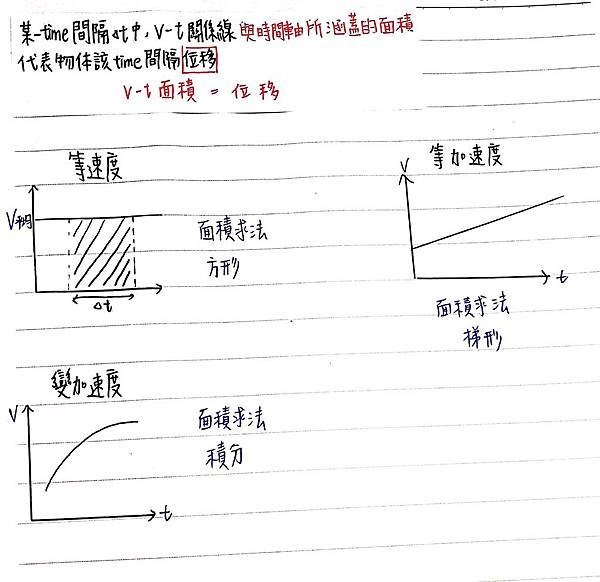 某-time間隔Δt中,V-t關係線與時間軸所涵蓋的面積
代表物体該time間隔位移
V-t面積 = 位移
等速度
V平均
面積求法
方形
Δt
等加速度
V
t
面積求法
梯形
變加速度
V
面積求法
積分
t